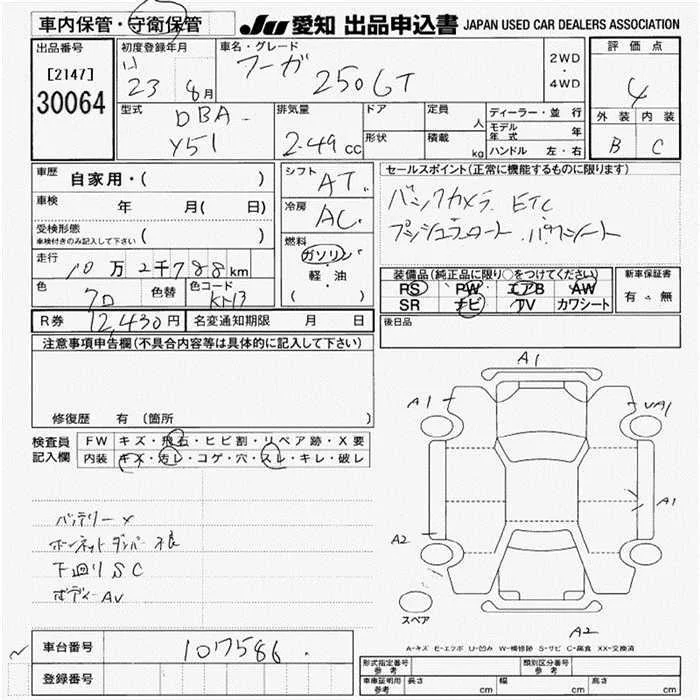 車内保管・守衛保管
JU 愛知 出品申込書 JAPAN USED CAR DEALERS ASSOCIATION
出品番号
[2147]
30064
初度登録年月
23 8月
車名・グレード
フーガ 250GT
2WD
・
4WD
評価点
4
外装 内装
B C
型式
DBA-
Y51
排気量
2.49 cc
ドア
形状
定員
人
積載
kg
ディーラー・並行
モデル年式 年
ハンドル 左・右
車歴
自家用・( )
車検
年 月( 日)
受検形態
車検付きのみ記入して下さい ( )
走行
10万2千788km
色
色替
色コード
KH3
シフト
AT
冷房
AC
燃料
ガソリン
・
軽・油
( )
セールスポイント(正常に機能するものに限ります)
バックカメラ ETC
プッシュスタート パワーシート
装備品(純正品に限り○をつけてください)
RS PW エアB AW
SR ナビ TV カワシート
新車保証書
有・無
後日品
R券
12,430円
名変通知期限 月 日
注意事項申告欄(不具合内容等は具体的に記入して下さい)
修復歴 有 (箇所 )
検査員
記入欄
FW キズ・飛石・ヒビ割・リペア跡・X要
内装 キズ・汚レ・コゲ・穴・スレ・キレ・破レ
バッテリー×
ボンネットダンパー不良
下回りSC
ボディーAU
A1
A1
A1
A1
A2
スペア
A2
A-キズ E-エクボ U-凹み W-補修跡 S-サビ C-腐食 XX-交換済
車台番号
107586
登録番号
形式指定番号
参考
類別区分番号
参考
車庫証明用
参考
長さ cm
幅 cm
高さ cm